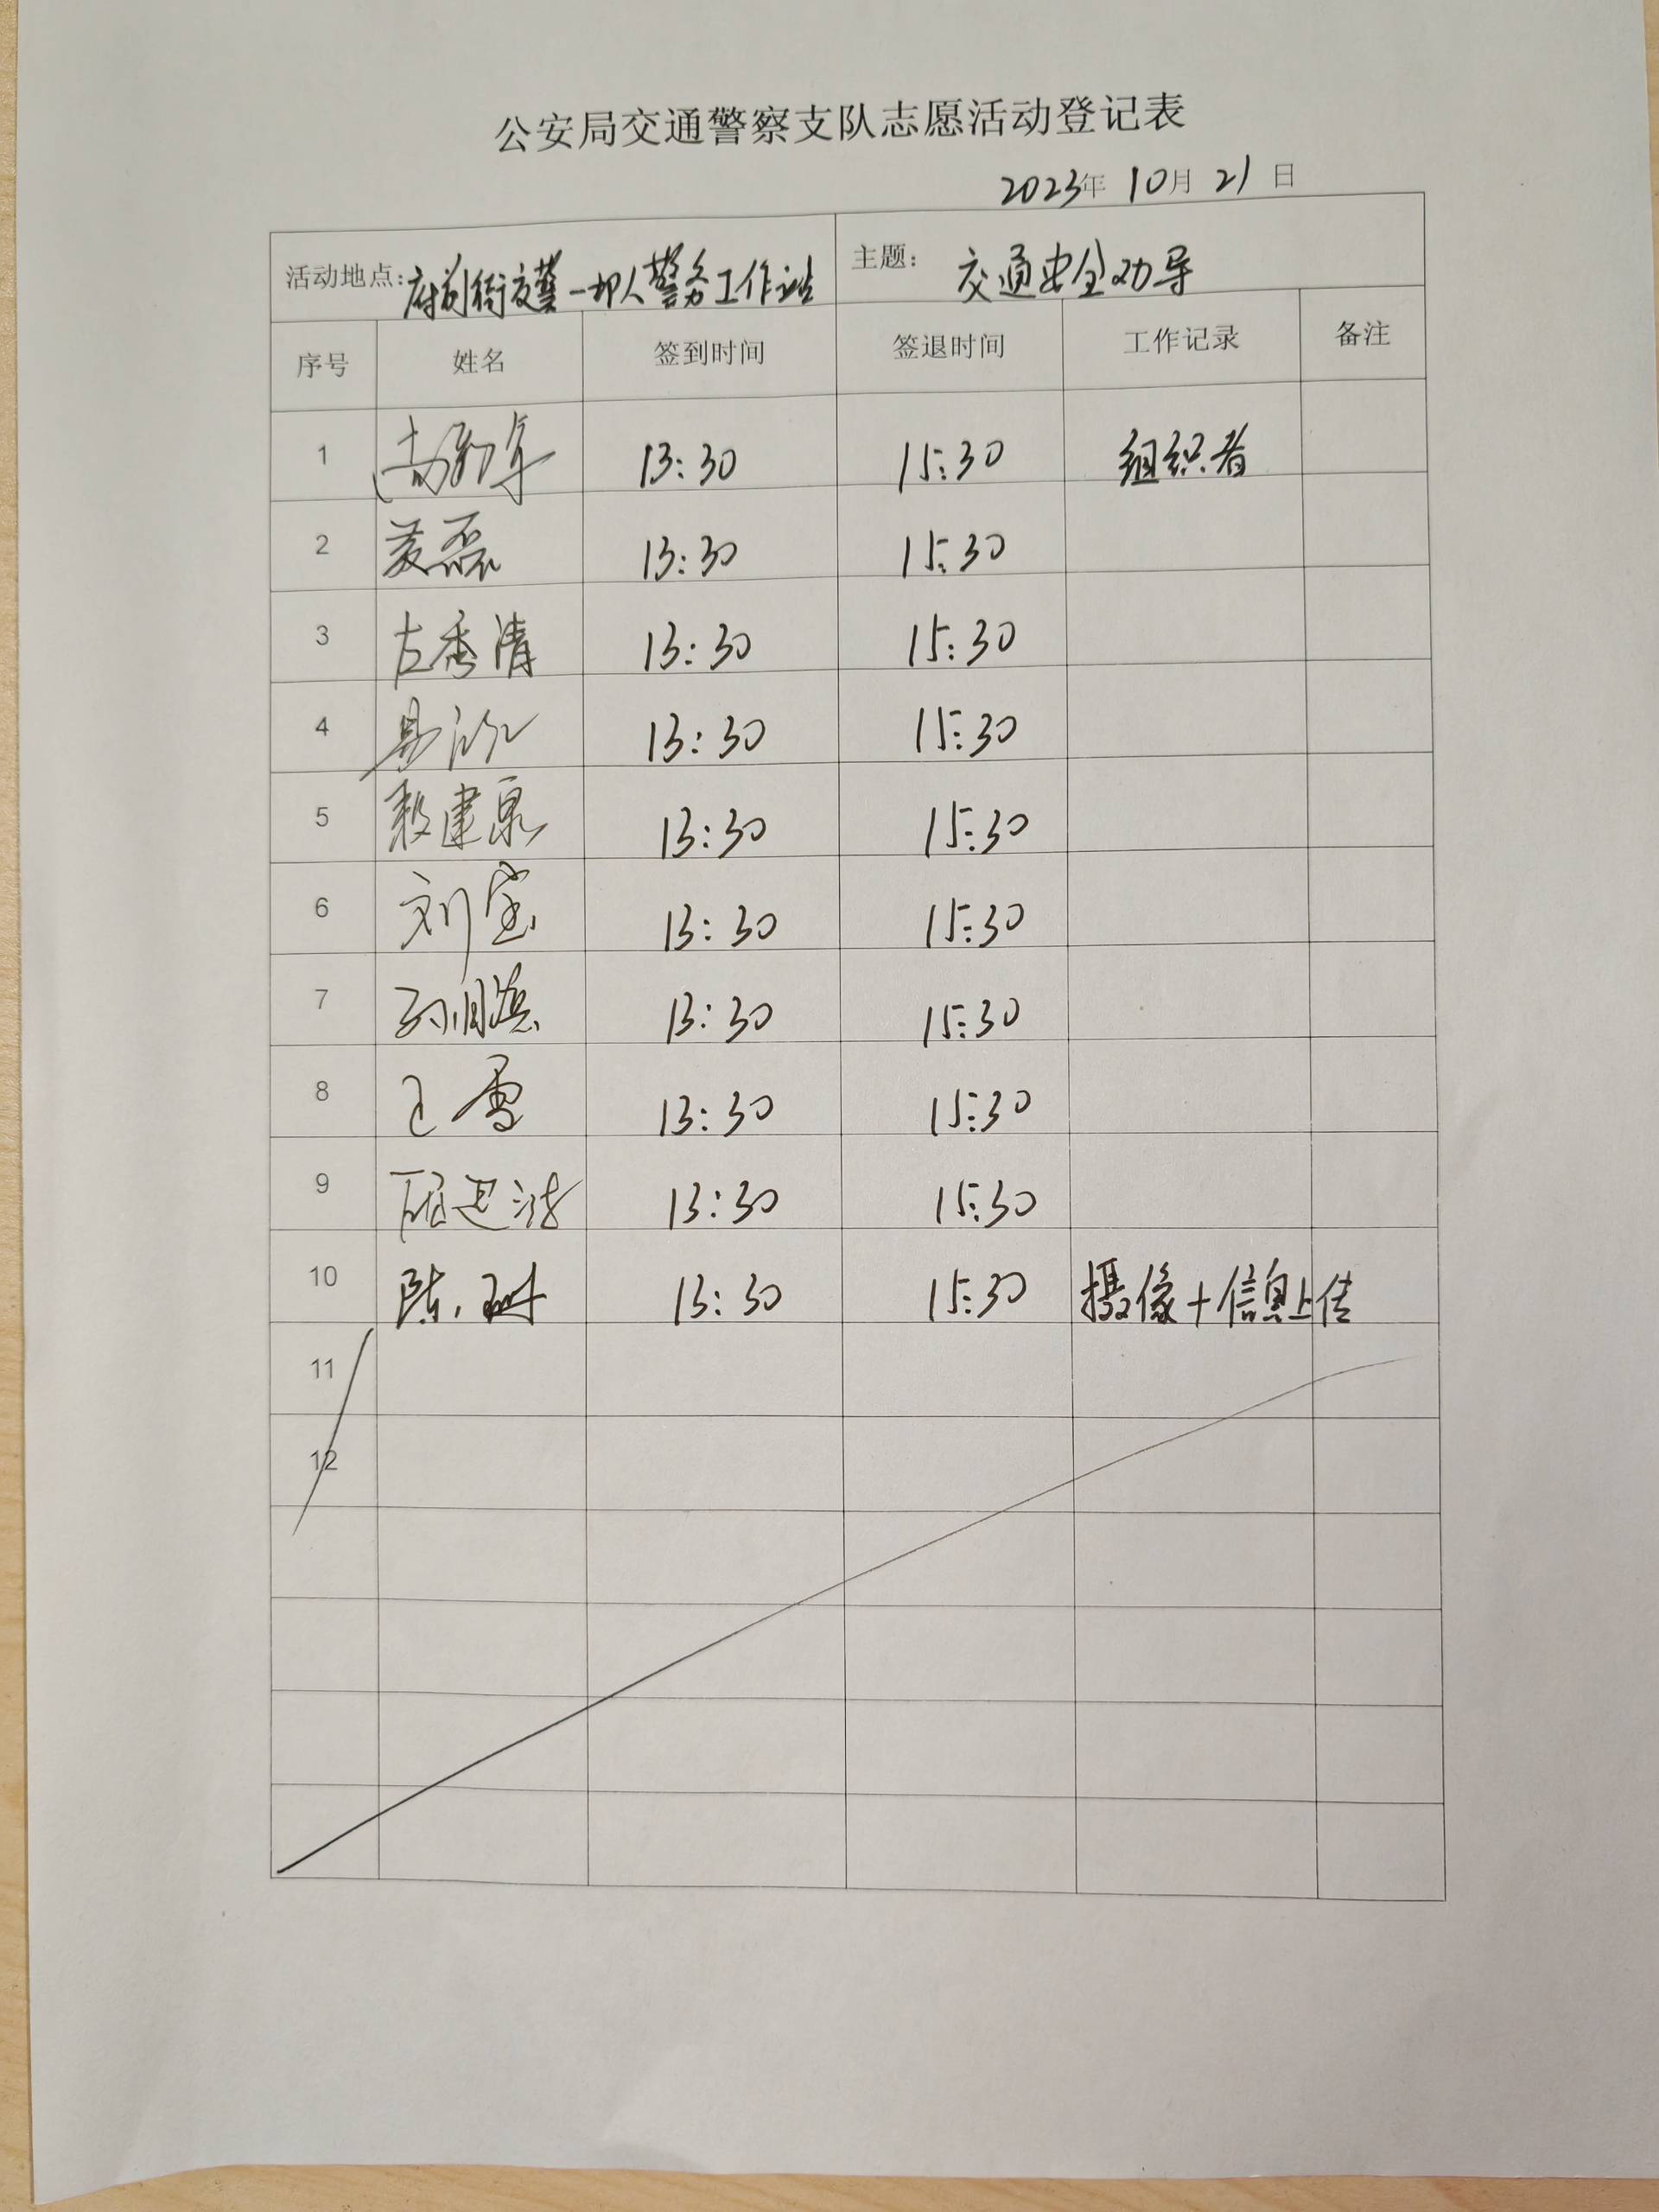 公安局交通警察支队志愿活动登记表
2023年 10月 21日
活动地点: 府前街交警 警务工作站 主题: 交通安全劝导
序号 姓名 签到时间 签退时间 工作记录 备注
1 13:30 15:30 组织者
2 磊 13:30 15:30
3 古秀清 13:30 15:30
4 13:30 15:30
5 建泉 13:30 15:30
6 刘宝 13:30 15:30
7 孙 13:30 15:30
8 王雪 13:30 15:30
9 13:30 15:30
10 陈 13:30 15:30 摄像+信息上传
11
12